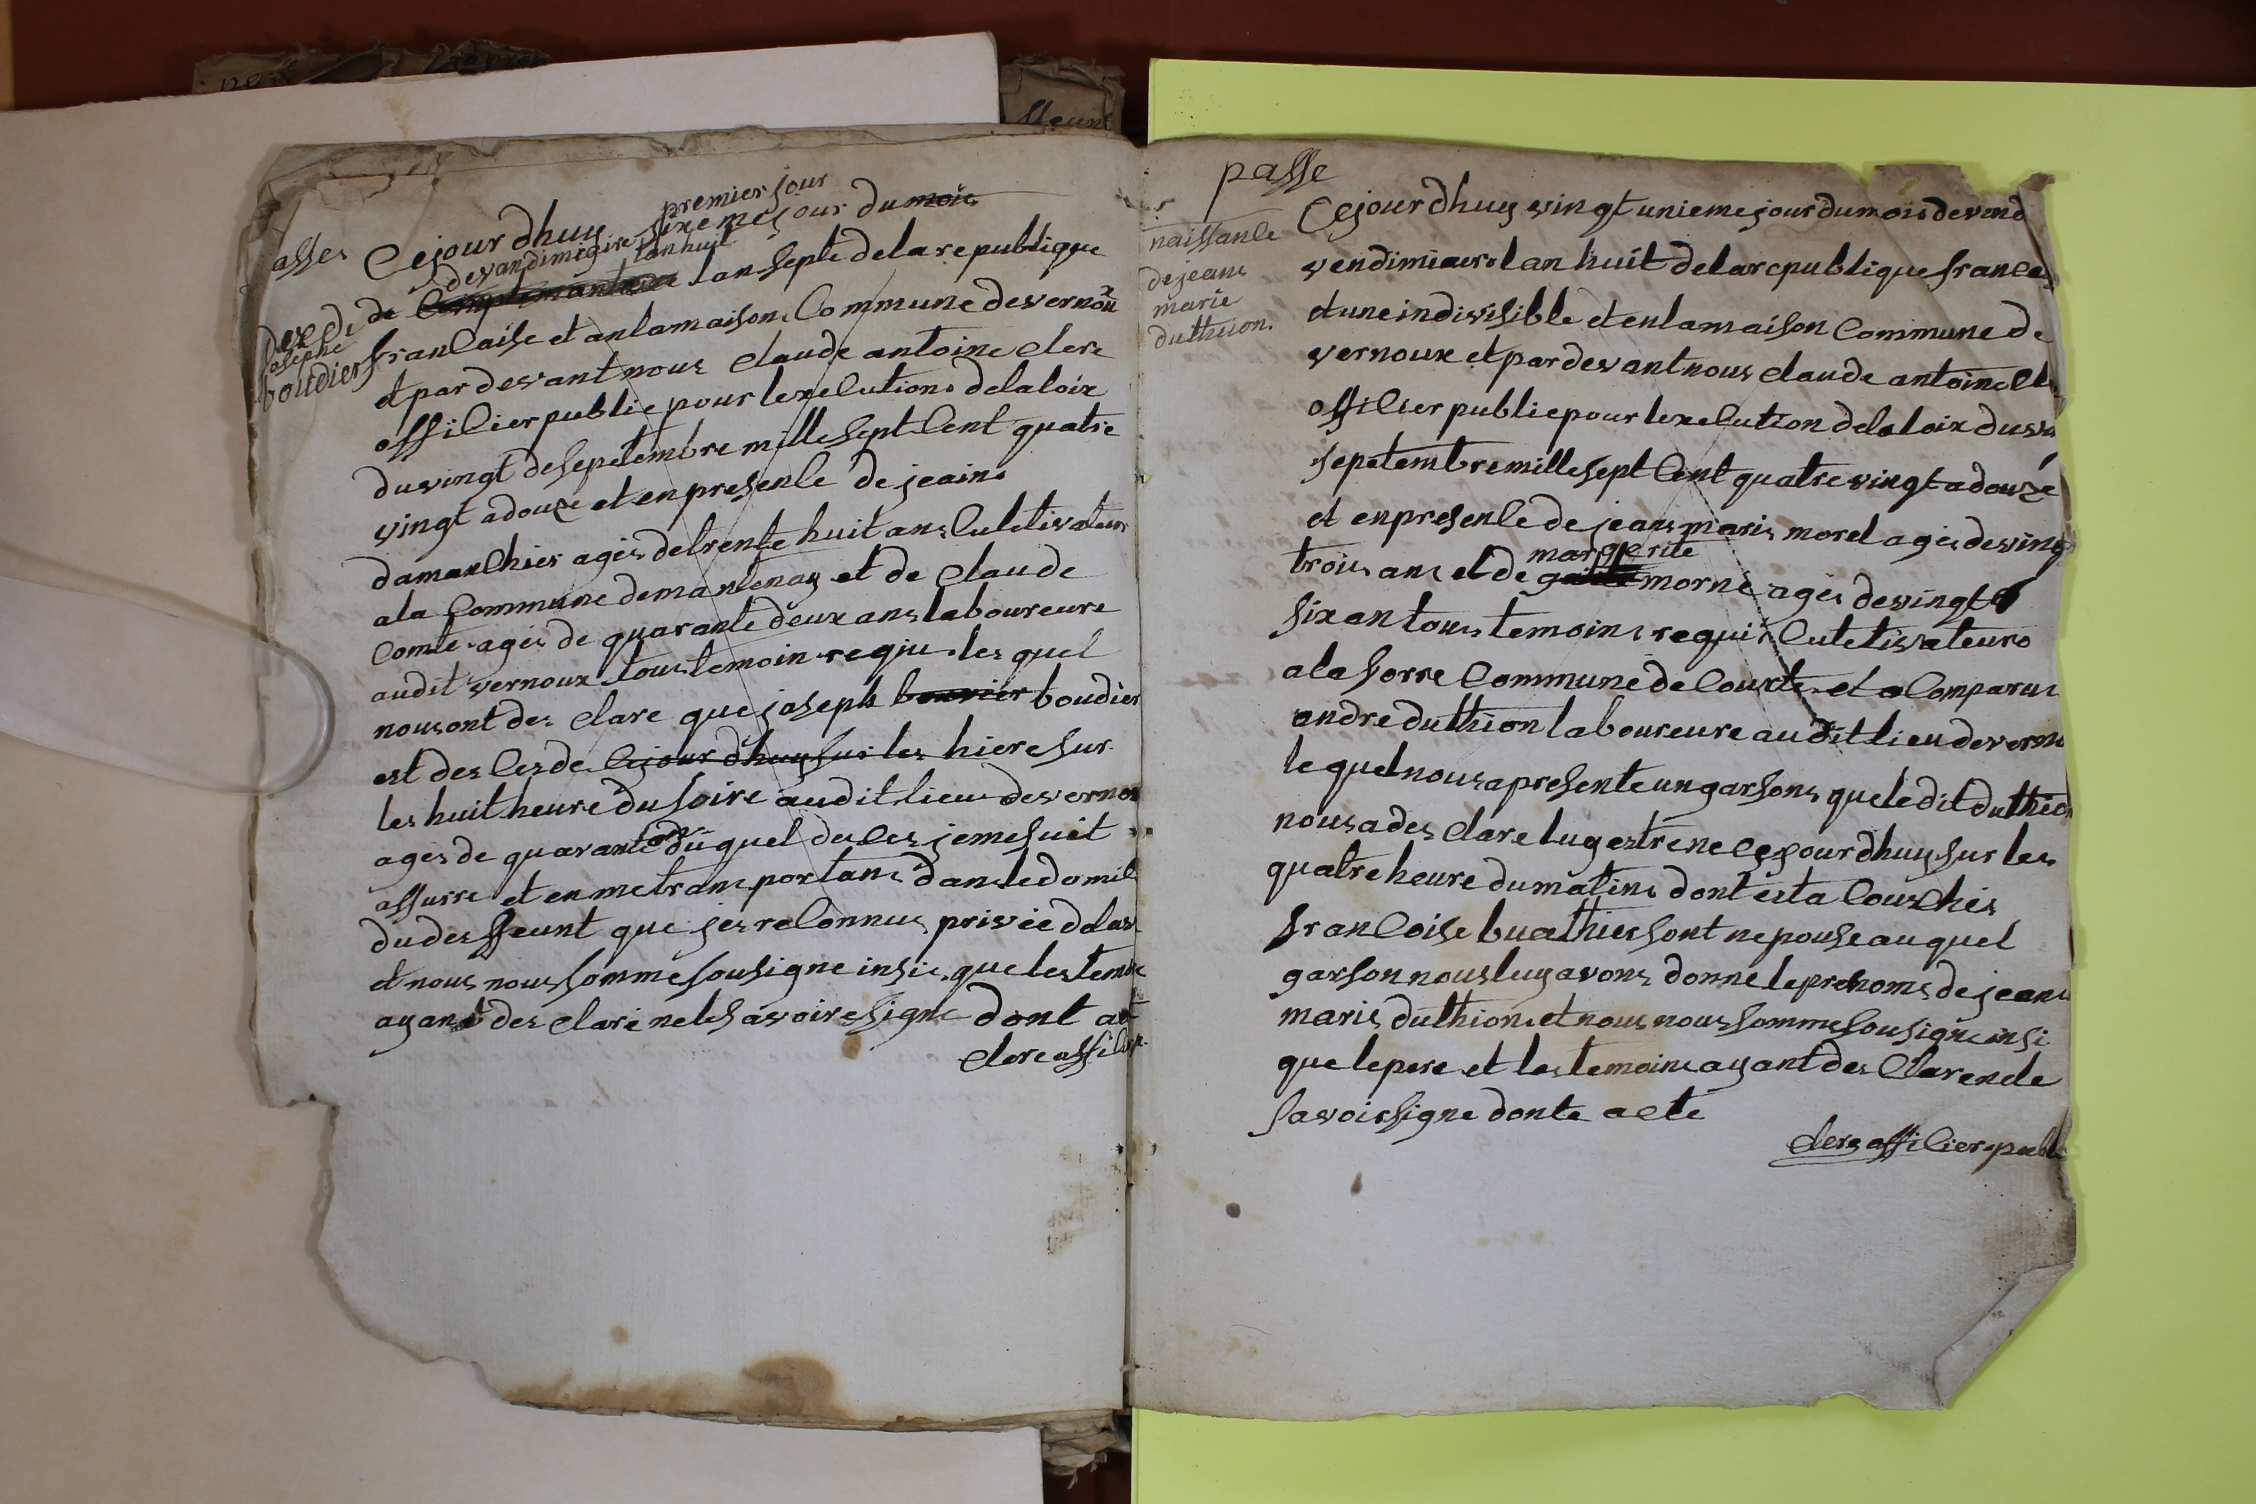 asses
premier jour
Cejour dhuy sixeme jour du mois
devandimiaire lan huit
de Complemantaire lan septe de la republique
dexe de
josephe
boudier
francaise et anlamaison Commune devernou
et par devant nous claude antoine clerc
officier public pour lexecutions delaloix
duvingt desepetembre mille sept Cent quatre
vingt adouze et enpresence de jeain
damanchier ages detrente huit ans Culetivateur
ala Commune demantenay et de claude
Comte ages de quarante deux ans laboureure
audit vernoux tous temoin requi lesquel
nousont des clare que joseph bouvier boudier
est des cesde Cejour dhuy sur les hiere sur
les huit heure du soire audit lieu devernou
ages de quarante duquel deces jemesuit
assurre et en metransportans dansledomil
dudesffeunt que jes reconnus privée delavi
et nous nous somme sousigne insie que lestemoin
ayant des claré nelesavoire signe dont act
clerc officier
passe
naissance
dejeans
marie
duthion
Cejour dhuy vingt unieme jour du mois devend
vendimiaire lan huit delarepublique francai
et une indivisible et enlamaison Commune de
vernoux et pardevant nous claude antoine cle
officier public pour lexecution delaloix duvin
sepetembre mille sept Cent quatre vingt adouzé
et enpresence de jeans marie morel ages deving
marguerite
trois ans et de morne ages devingt
six an tous temoins requis Culetivateuro
ala forre Commune de Courte et a Comparus
andre duthion laboureure audit lieu devernou
lequel nousapresente un garsons queledit duthion
nousades clare luy estre ne cejour dhuy sur les
quatre heure dumatins dont esta Couchés
francoise buathier sont nepouse auquel
garson nousluy avons donne leprenoms dejeans
marie duthion et nous nous somme sousigne insi
que lepere et les temoins ayant des Clarenele
savoir signe donte acte
clerc officier publi